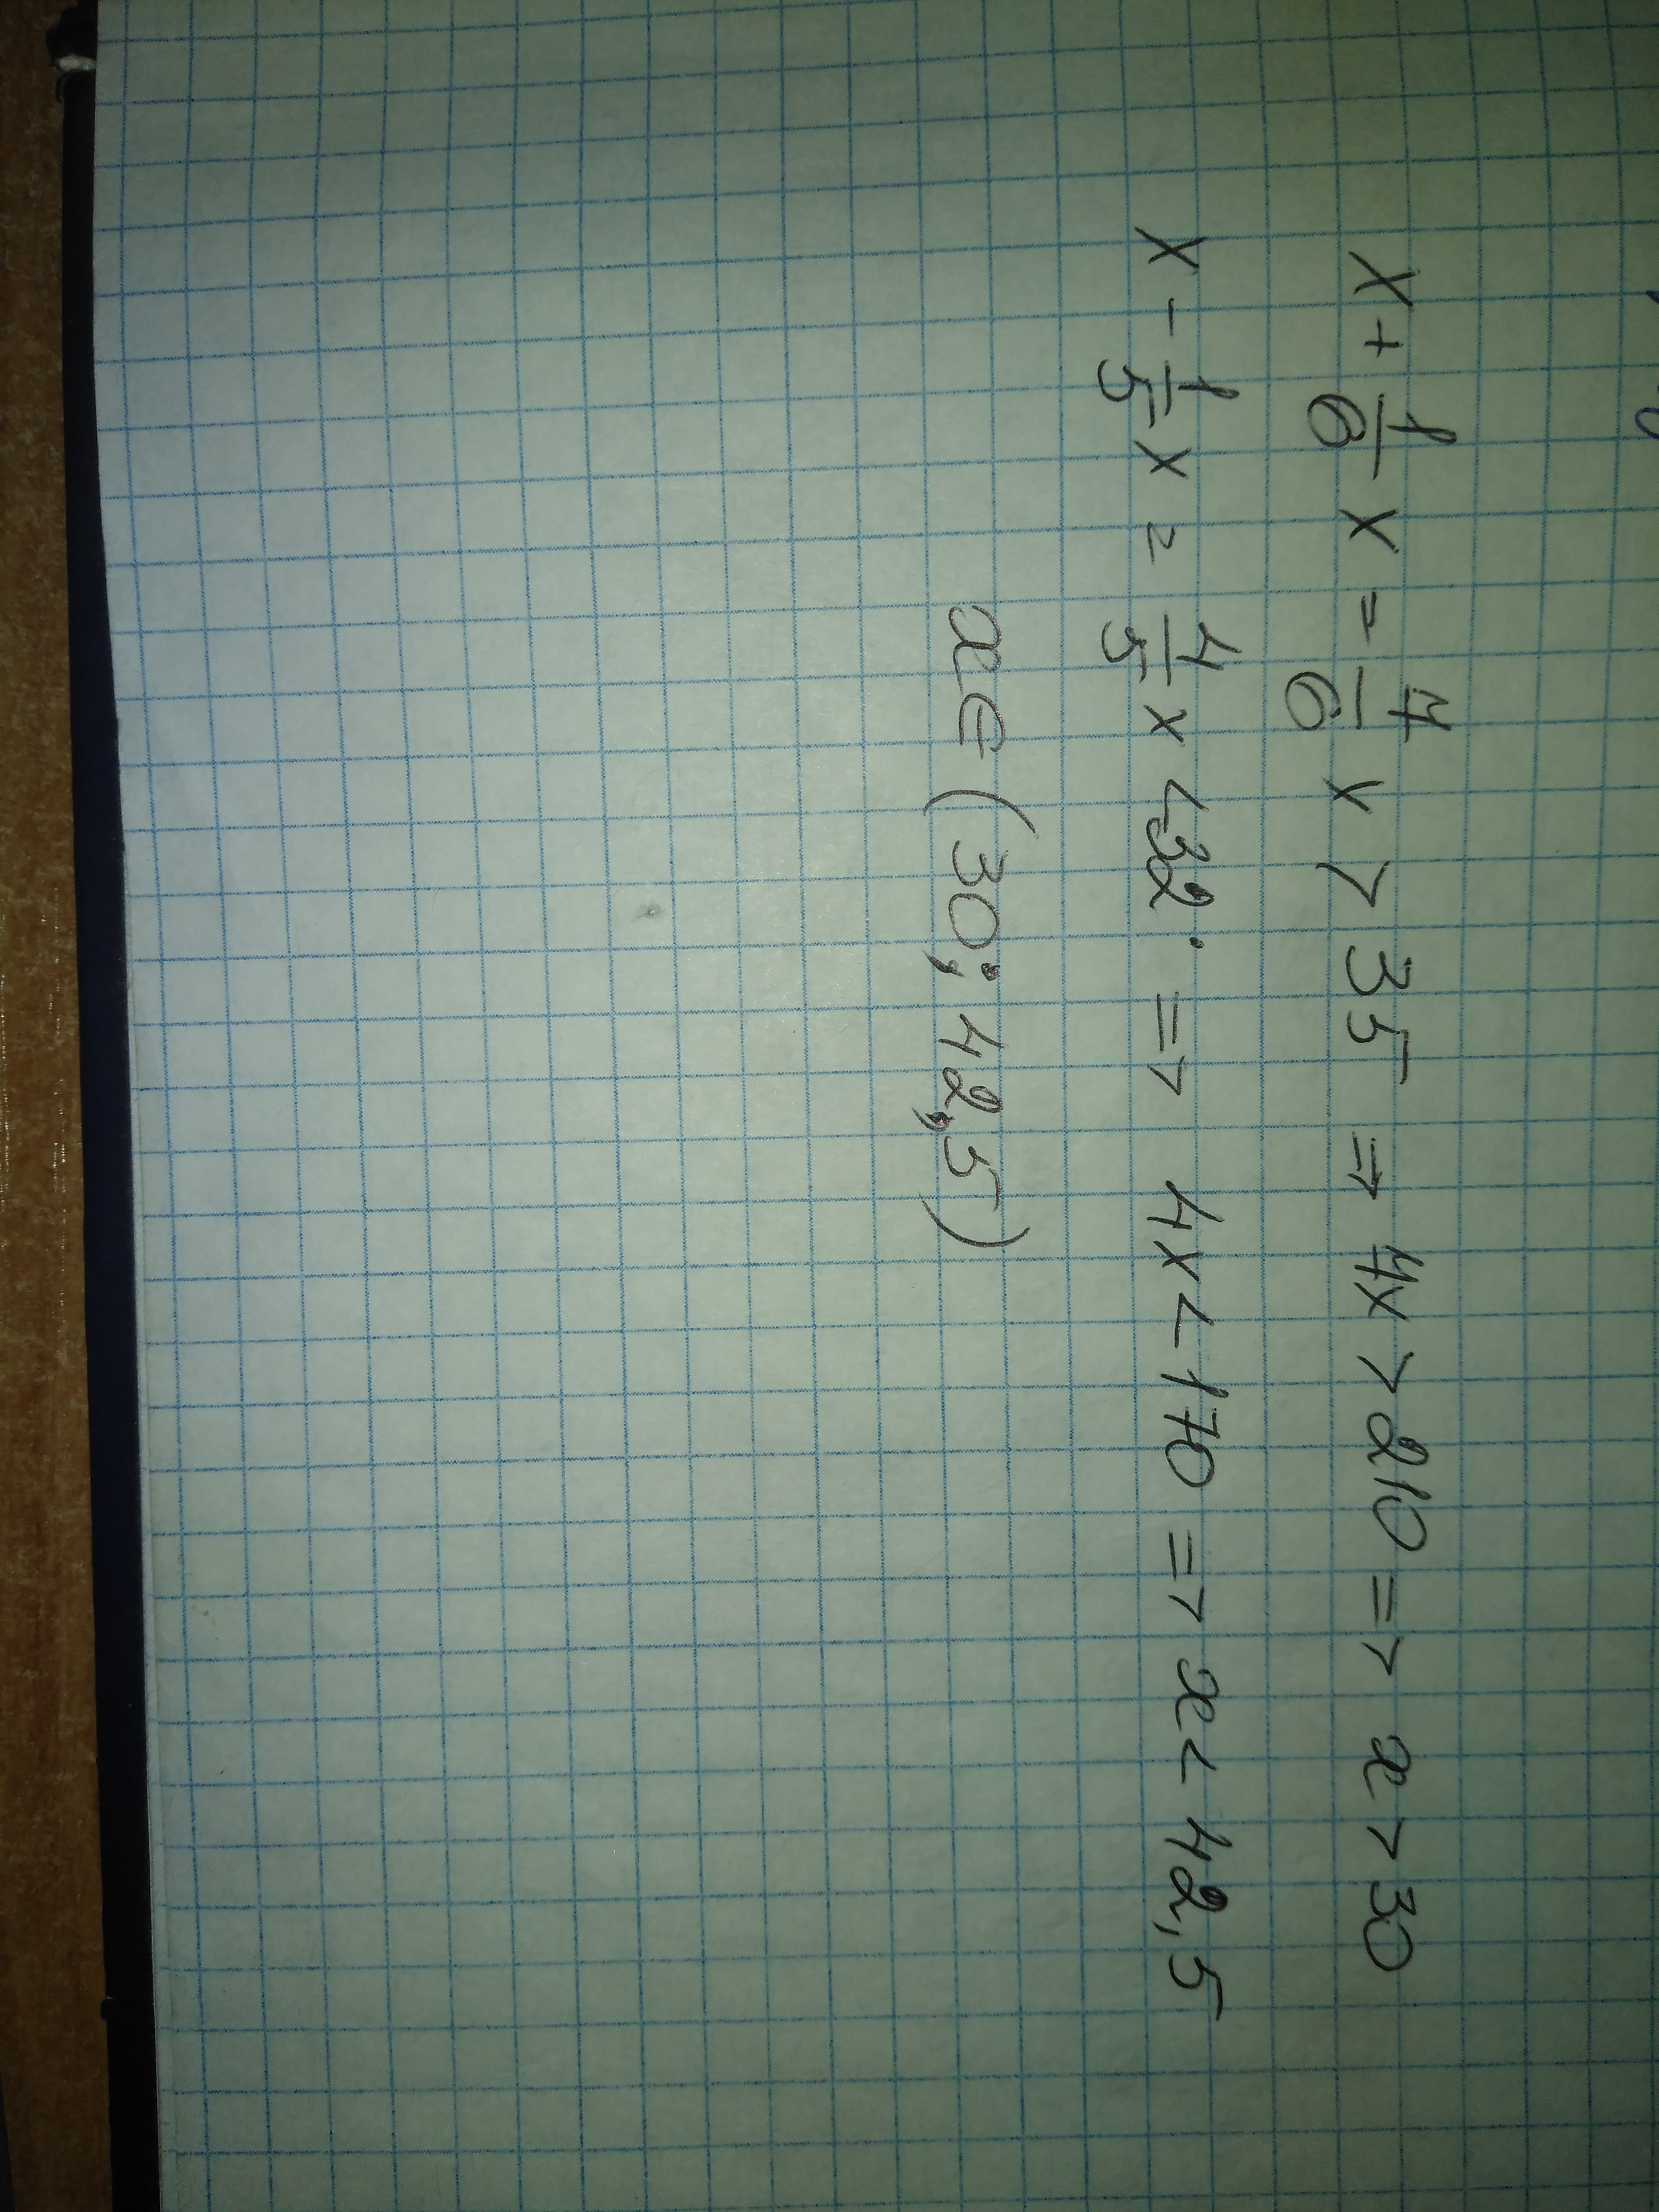 x + 1/6 x = 7/6 x > 35 ⇒ 7x > 210 => x > 30
x - 1/5 x = 4/5 x < 32. => 4x < 170 => x < 42,5
x ∈ (30; 42,5)